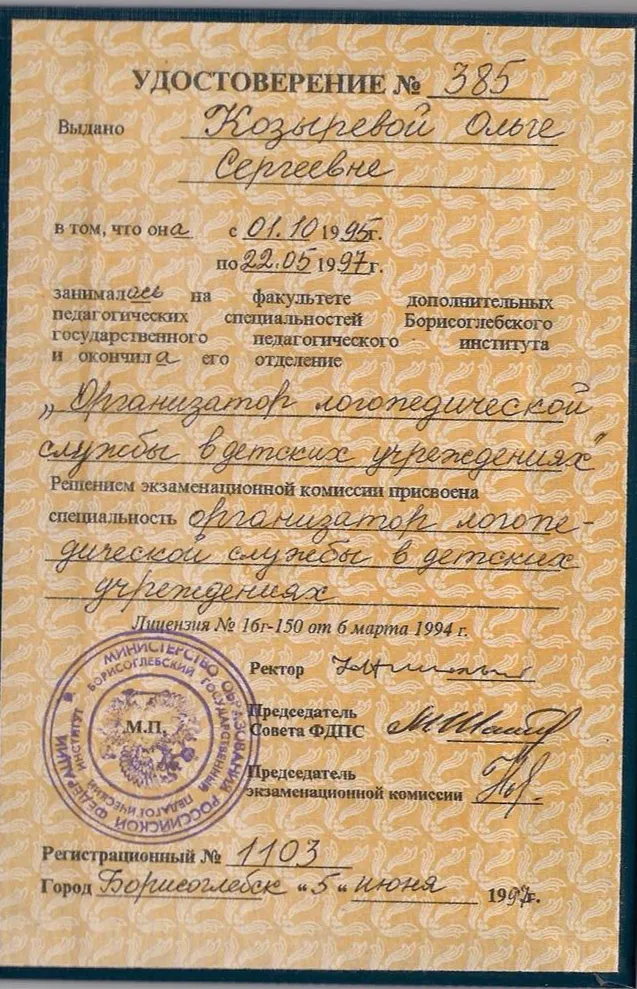 УДОСТОВЕРЕНИЕ № 385
Выдано Козыревой Ольге
Сергеевне
в том, что она с 01.10 1995г.
по 22.05 1997г.
занималась на факультете дополнительных
педагогических специальностей Борисоглебского
государственного педагогического института
и окончила его отделение
„Организатор логопедической
службы в детских учреждениях"
Решением экзаменационной комиссии присвоена
специальность организатор логопе-
дической службы в детских
учреждениях
Лицензия № 16г-150 от 6 марта 1994 г.
МИНИСТЕРСТВО ОБРАЗОВАНИЯ РОССИЙСКОЙ ФЕДЕРАЦИИ
БОРИСОГЛЕБСКИЙ ГОСУДАРСТВЕННЫЙ ПЕДАГОГИЧЕСКИЙ ИНСТИТУТ
М.П.
Ректор
Председатель
Совета ФДПС
Председатель
экзаменационной комиссии
Регистрационный № 1103
Город Борисоглебск «5« июня 1997г.